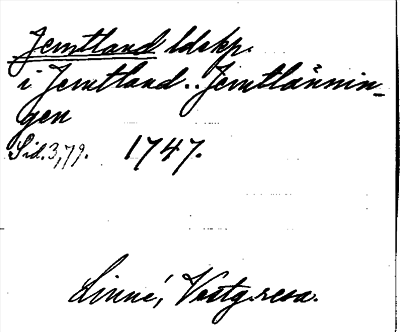 Jemtland ldskp.
i Jemtland.. Jemtlännin-
gen
Sid. 3, 79. 1747.
Linné, Vestg.resa.